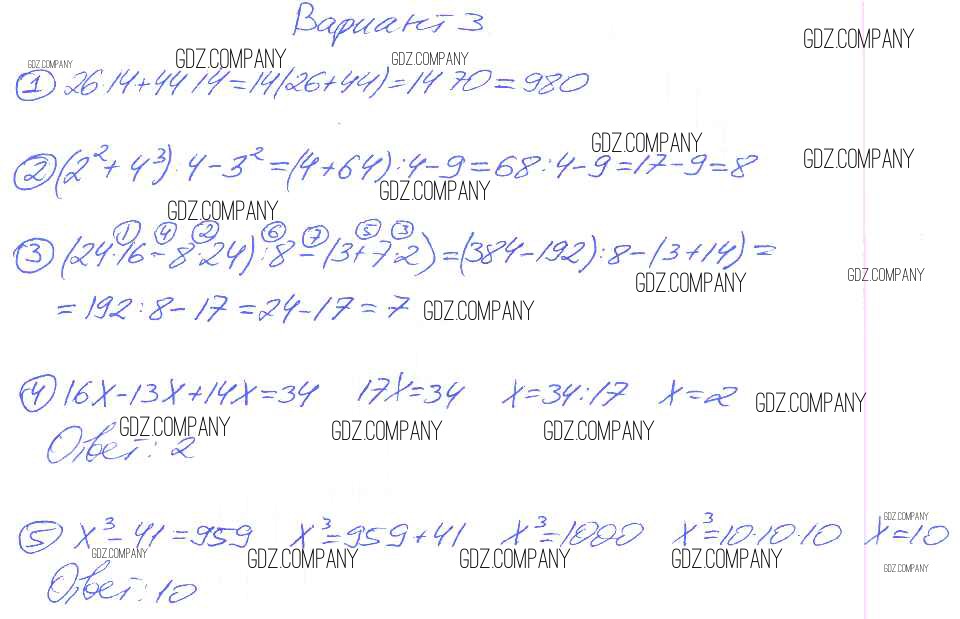 Вариант 3
GDZ.COMPANY GDZ.COMPANY GDZ.COMPANY GDZ.COMPANY
① 26·14+44 14=14(26+44)=14 70=980
GDZ.COMPANY
② (2²+4³)·4-3²=(4+64):4-9=68:4-9=17-9=8 GDZ.COMPANY
GDZ.COMPANY GDZ.COMPANY
① ④ ② ⑥ ⑦ ⑤ ③
③ (24·16-8·24):8-(3+7·2)=(384-192):8-(3+14)=
GDZ.COMPANY GDZ.COMPANY
=192:8-17=24-17=7 GDZ.COMPANY
④ 16x-13x+14x=34 17x=34 x=34:17 x=2 GDZ.COMPANY
GDZ.COMPANY GDZ.COMPANY GDZ.COMPANY
Ответ: 2
GDZ.COMPANY
⑤ x³-41=959 x³=959+41 x³=1000 x³=10·10·10 x=10
GDZ.COMPANY GDZ.COMPANY GDZ.COMPANY GDZ.COMPANY GDZ.COMPANY
Ответ: 10